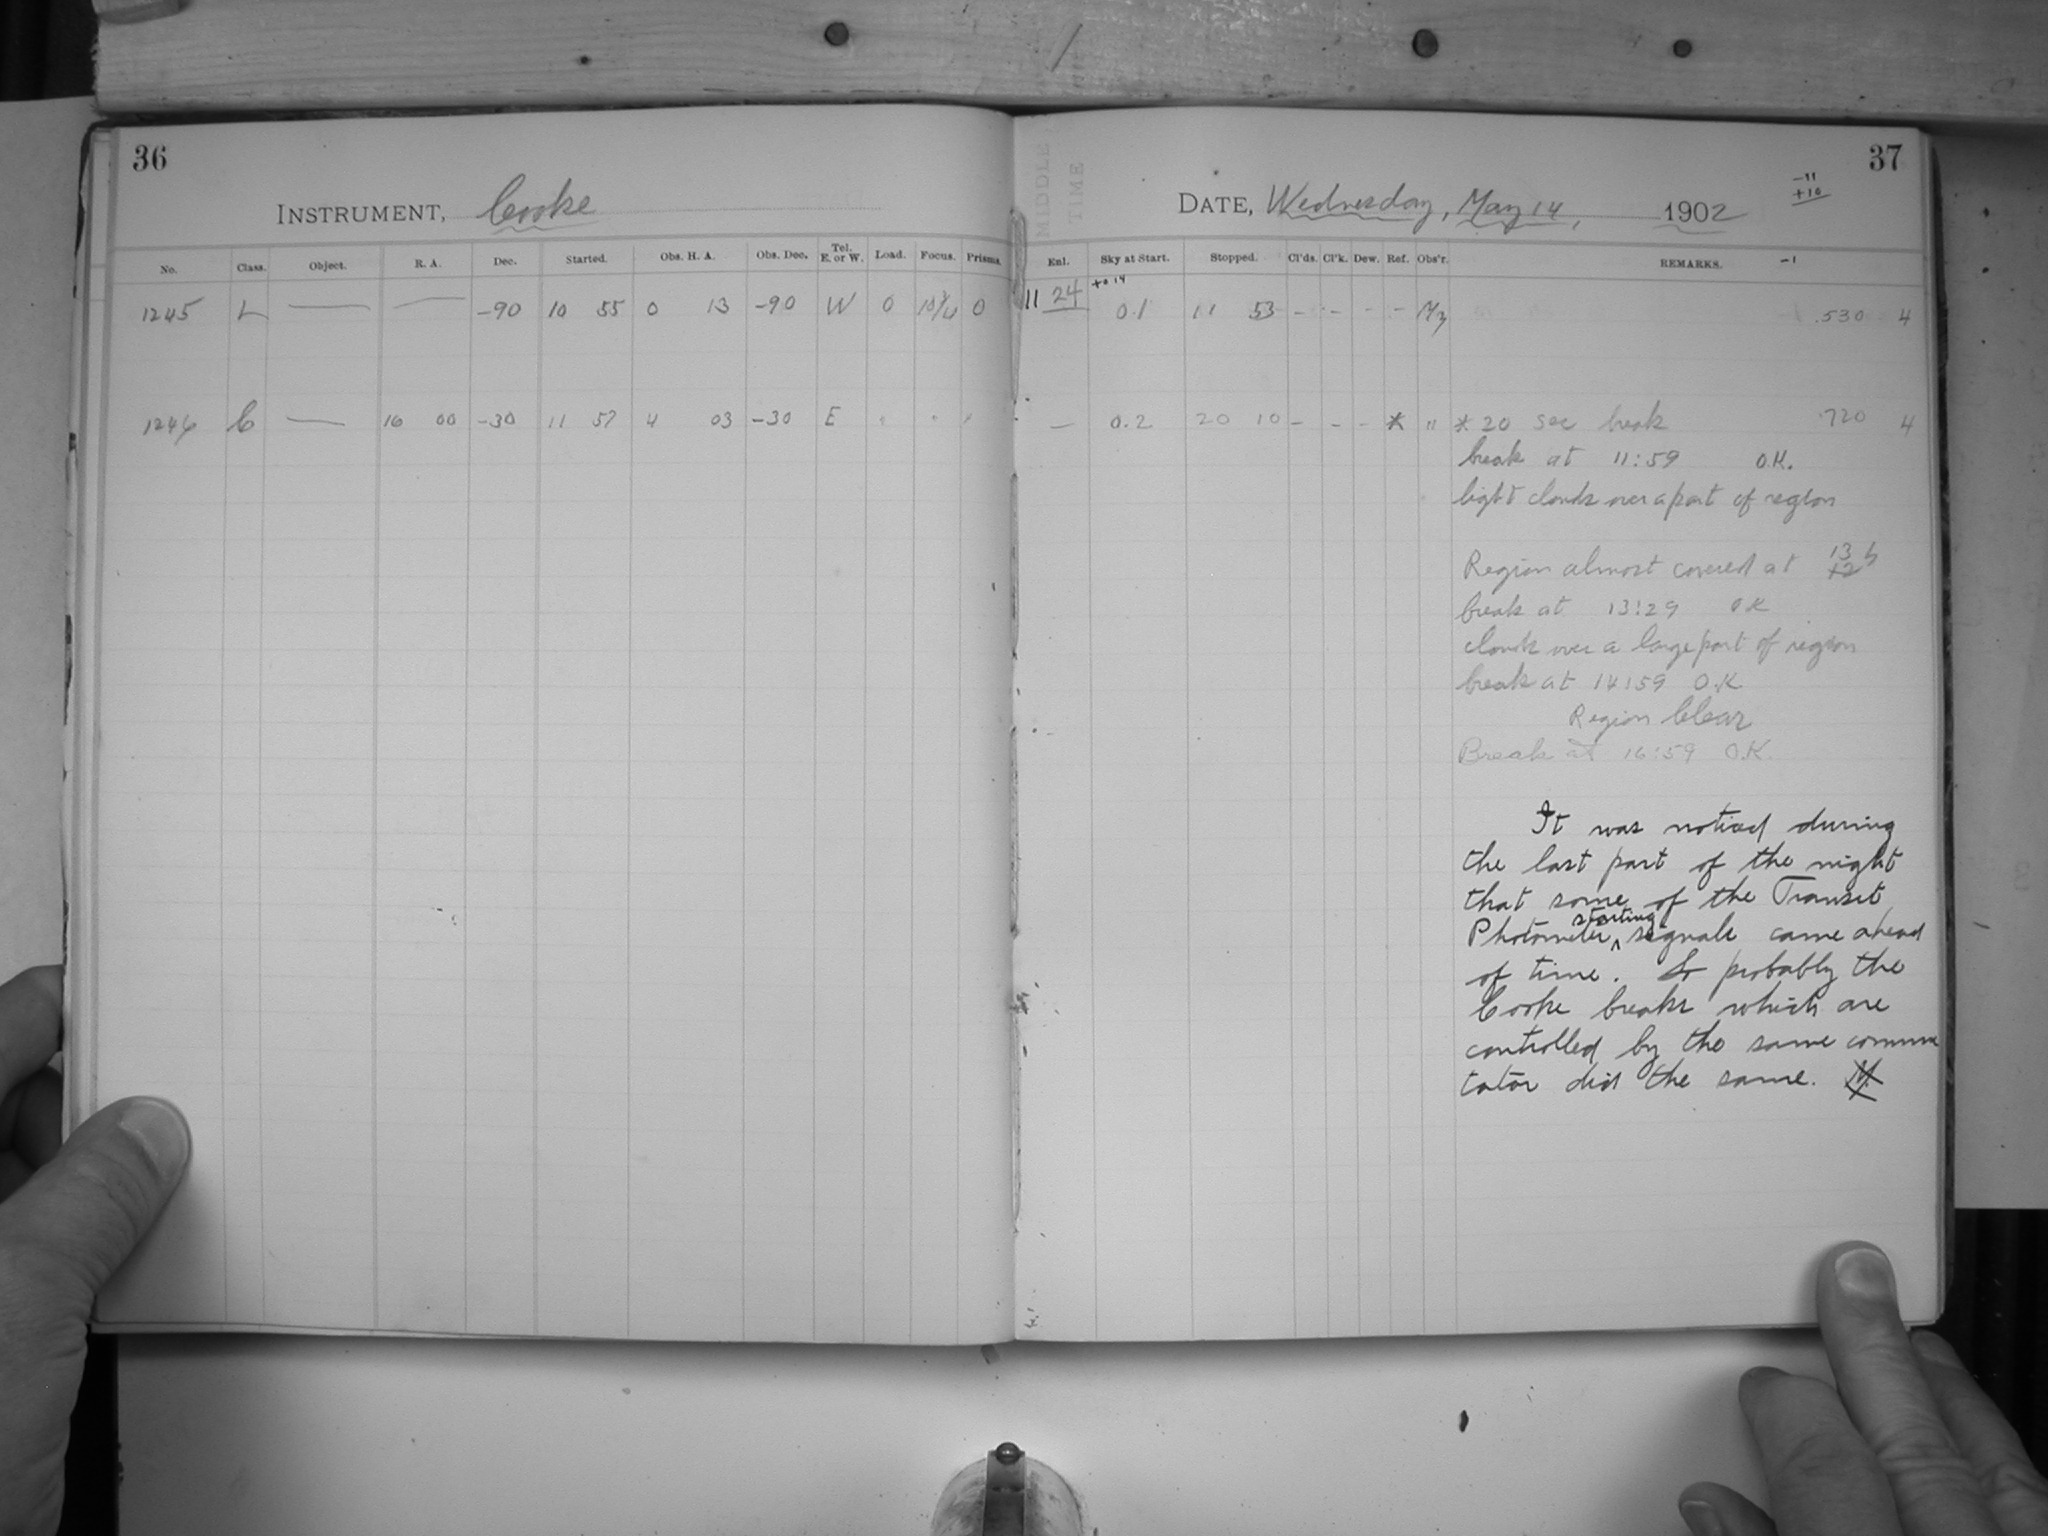 36
INSTRUMENT, Cooke
No. Class. Object. R. A. Dec. Started. Obs. H. A. Obs. Dec. Tel. E. or W. Load. Focus. Prisms.
1245 L — — -90 10 55 0 13 -90 W 0 10 3/4 0
1246 C — 16 00 -30 11 57 4 03 -30 E " " "
37
-11
+10
DATE, Wednesday, May 14, 1902
MIDDLE
TIME
Enl. Sky at Start. Stopped. Cl'ds. Cl'k. Dew. Ref. Obs'r. REMARKS. -1
11 24 +0 14 0.1 11 53 - - - - .530 4
— 0.2 20 10 - - - * " * 20 sec break .720 4
break at 11:59 O.K.
light clouds over a part of region
Region almost covered at 13 h
break at 13:29 OK
clouds over a large part of region
break at 14:59 O.K
Region Clear
Break at 16:59 O.K.
It was noticed during
the last part of the night
that some of the Transit
Photometer starting signals came ahead
of time. So probably the
Cooke breaks which are
controlled by the same commu
tator did the same. M.